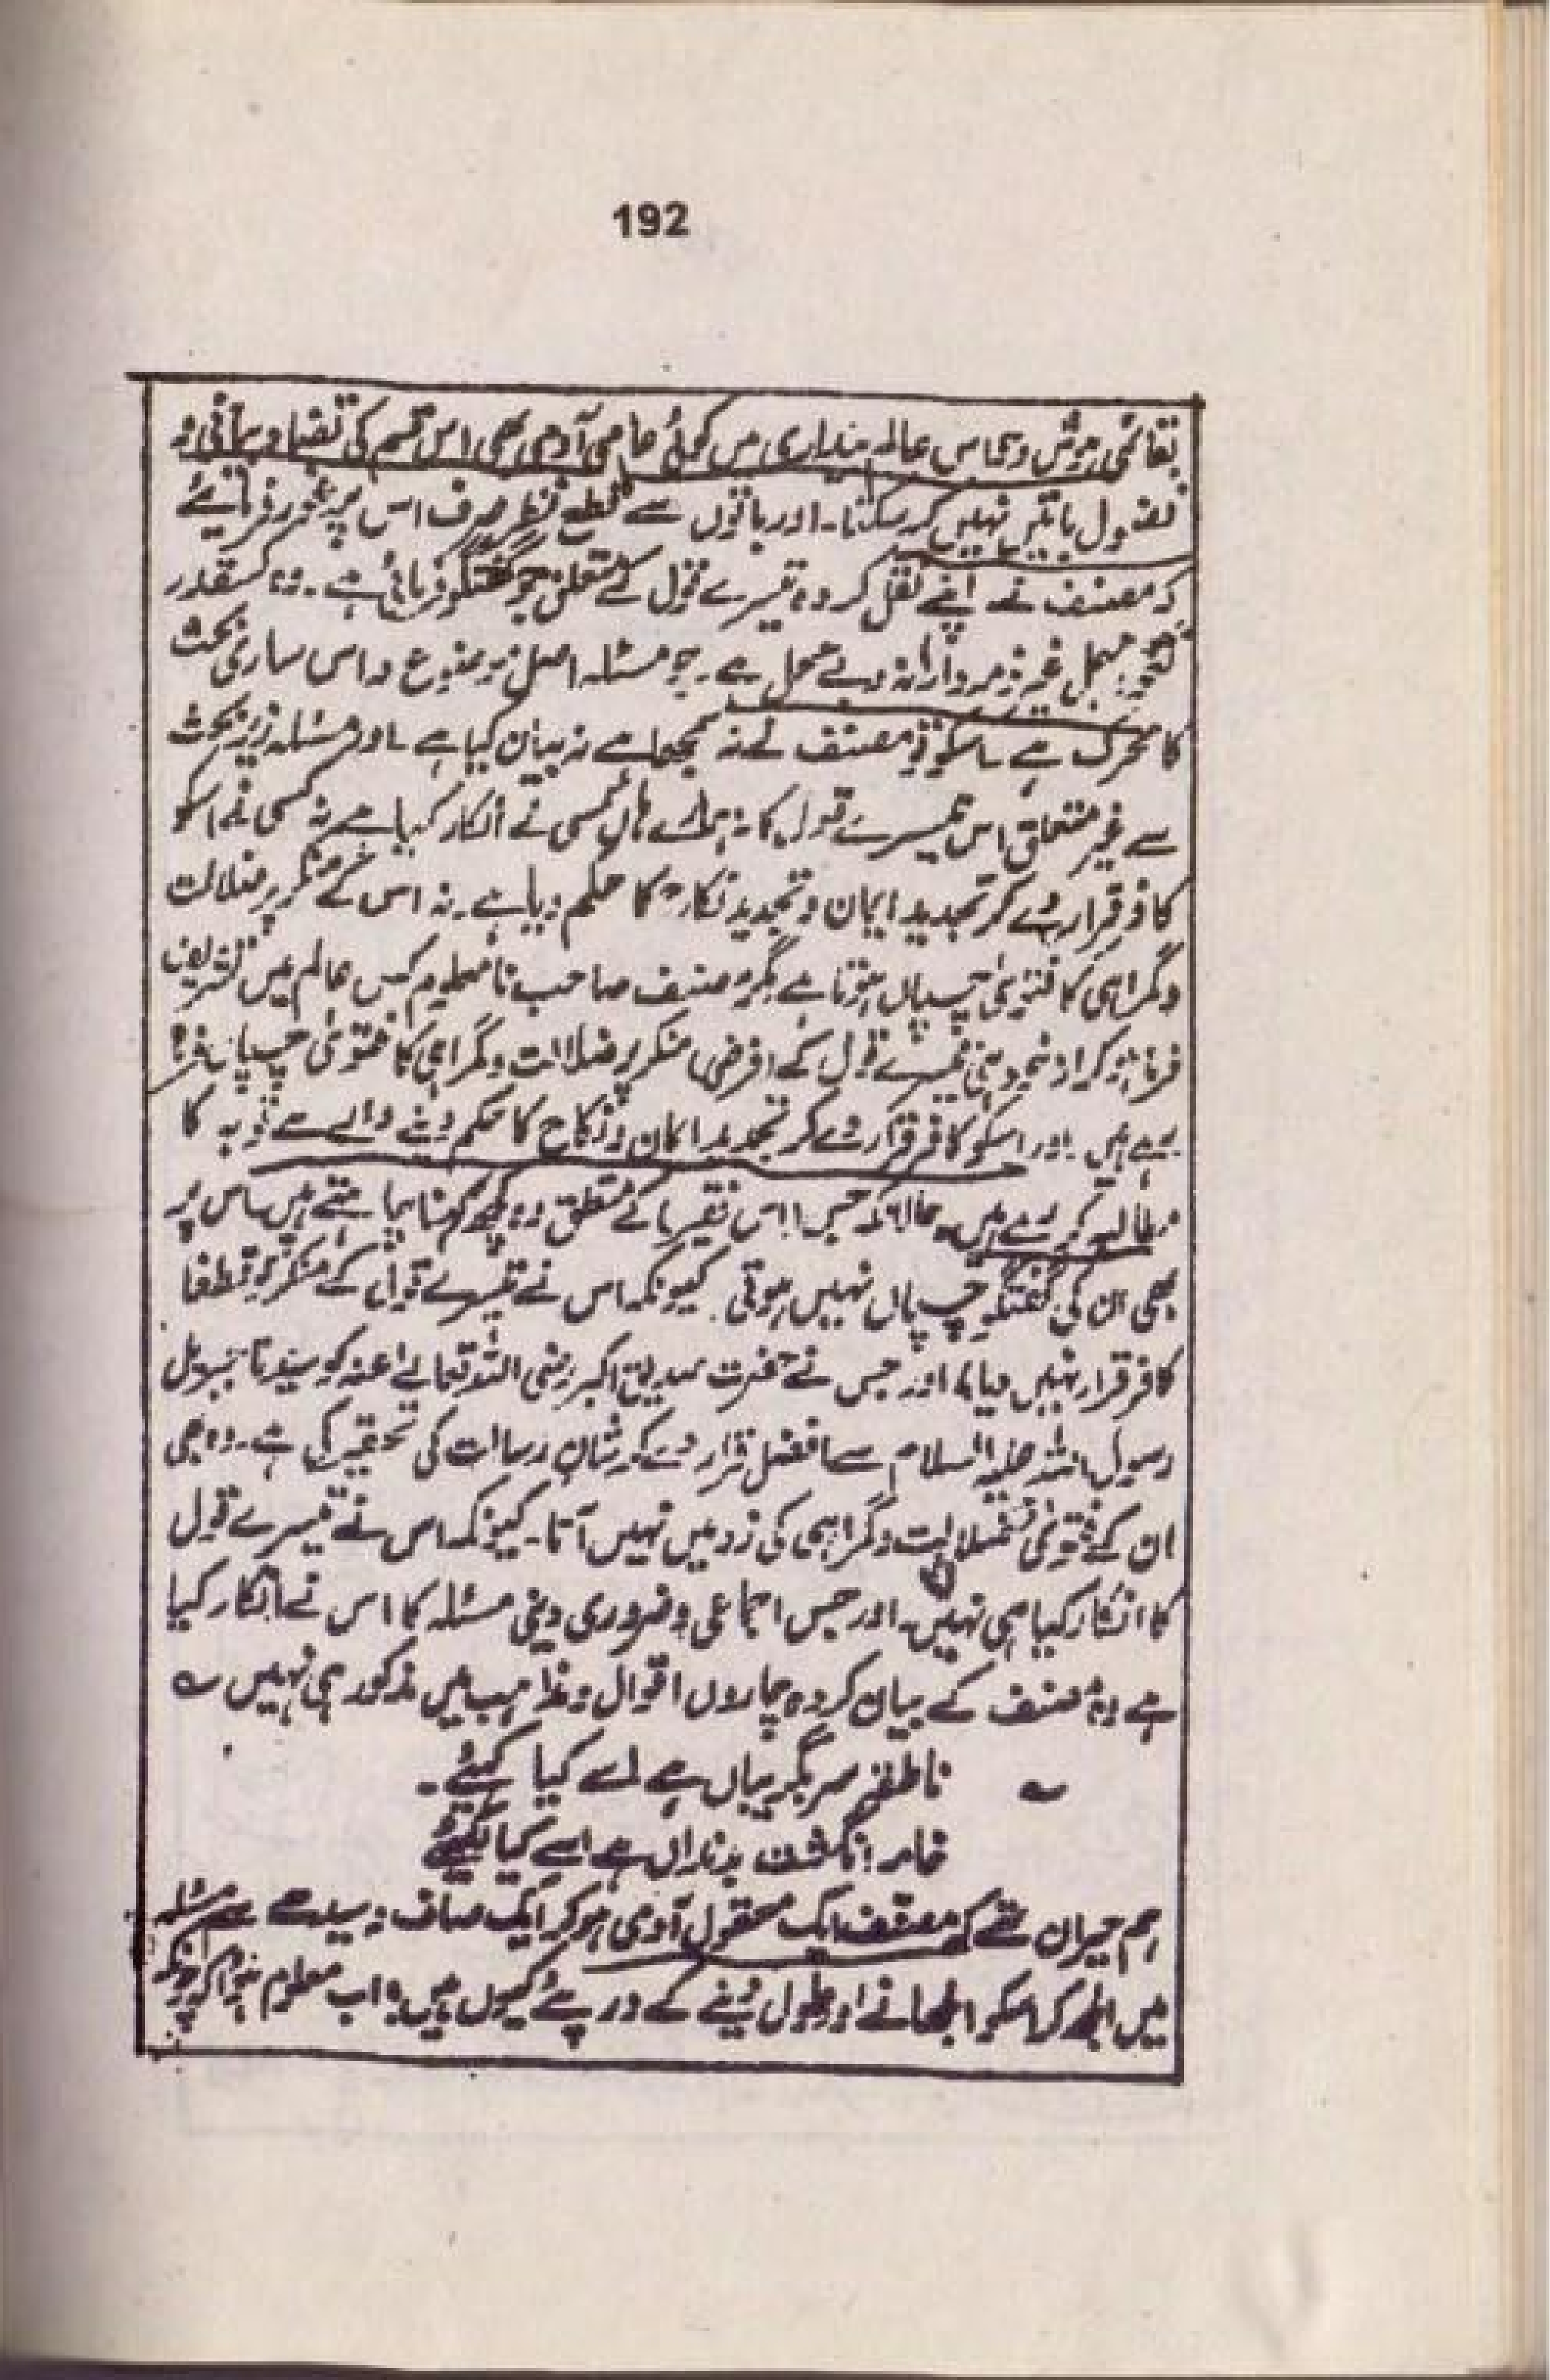 192
بقائمی ہوش وحواس عالم بیداری میں کوئی عامی آدمی بھی اس قسم کی تضاد بیانی و
فضول باتیں نہیں کر سکتا۔ اور باتوں سے قطع نظر صرف اس پر غور فرمائیے
کہ مصنف نے اپنے نقل کردہ تیسرے قول کے متعلق جو گفتگو فرمائی ہے۔ وہ کسقدر
لغو مہمل غیر ذمہ دارانہ و بے محل ہے۔ جو مسئلہ اصل موضوع و اس ساری بحث
کا محرک ہے اسکو تو مصنف نے نہ سمجھا ہے نہ بیان کیا ہے اور مسئلہ زیر بحث
سے غیر متعلق اس تیسرے قول کا نہ ہمارے ہاں کسی نے انکار کیا ہے نہ کسی نے اسکو
کافر قرار دے کر تجدید ایمان و تجدید نکاح کا حکم دیا ہے۔ نہ اس کے منکر پر ضلالت
وگمراہی کا فتویٰ چسپاں ہوتا ہے مگر مصنف صاحب نامعلوم کس عالم میں تشریف
فرما ہو کر از خود ہی تیسرے قول کے فرضی منکر پر ضلالت وگمراہی کا فتویٰ چسپاں فرما
رہے ہیں۔ اور اسکو کافر قرار دے کر تجدید ایمان و نکاح کا حکم دینے والے سے توبہ کا
مطالبہ کر رہے ہیں۔ حالانکہ جس کے متعلق وہ کچھ کہنا چاہتے ہیں اس پر
بھی ان کی گفتگو چسپاں نہیں ہوتی کیونکہ اس نے تیسرے قول کے منکر کو قطعا
کافر قرار نہیں دیا۔ اور جس نے حضرت صدیق اکبر رضی اللہ تعالے عنہ کو سیدنا جبریل
رسول اللہ علیہ السلام سے افضل قرار دے کر شان رسالت کی تحقیر کی ہے۔ وہ بھی
ان کے فتویٰ ضلالت وگمراہی کی زد میں نہیں آتا۔ کیونکہ اس نے تیسرے قول
کا انکار کیا ہی نہیں۔ اور جس اجماعی و ضروری دینی مسئلہ کا اس نے انکار کیا
ہے وہ مصنف کے بیان کردہ چاروں اقوال و مذاہب میں مذکور ہی نہیں ؎
؎ ناطقہ سر بگریباں ہے اسے کیا کہئے۔
خامہ انگشت بدنداں ہے اسے کیا لکھئے
ہم حیران تھے کہ مصنف ایک معقول آدمی ہو کر ایک صاف سیدھے سے مسئلہ
میں الجھ کر اسکو الجھانے اور طول دینے کے درپئے کیوں ہیں؟ اب معلوم ہوا کہ چونکہ